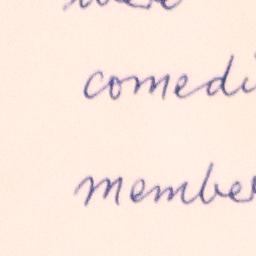 comedi
member